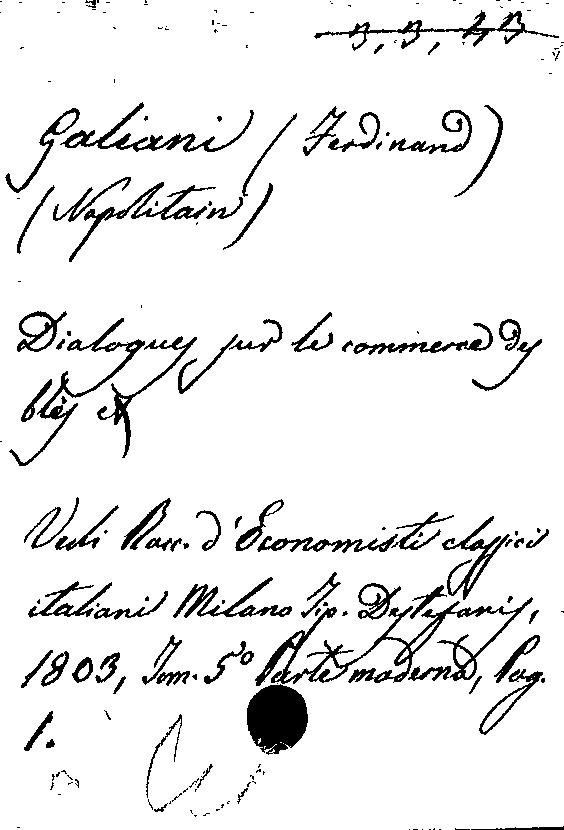 3, 3, 43
Galiani (Ferdinand)
(Napolitain)
Dialogues sur le commerce des
blés et
Vedi Racc. d'Economisti classici
italiani Milano Tip. Destefanis,
1803, Tom. 5º Parte moderna, Pag.
1.